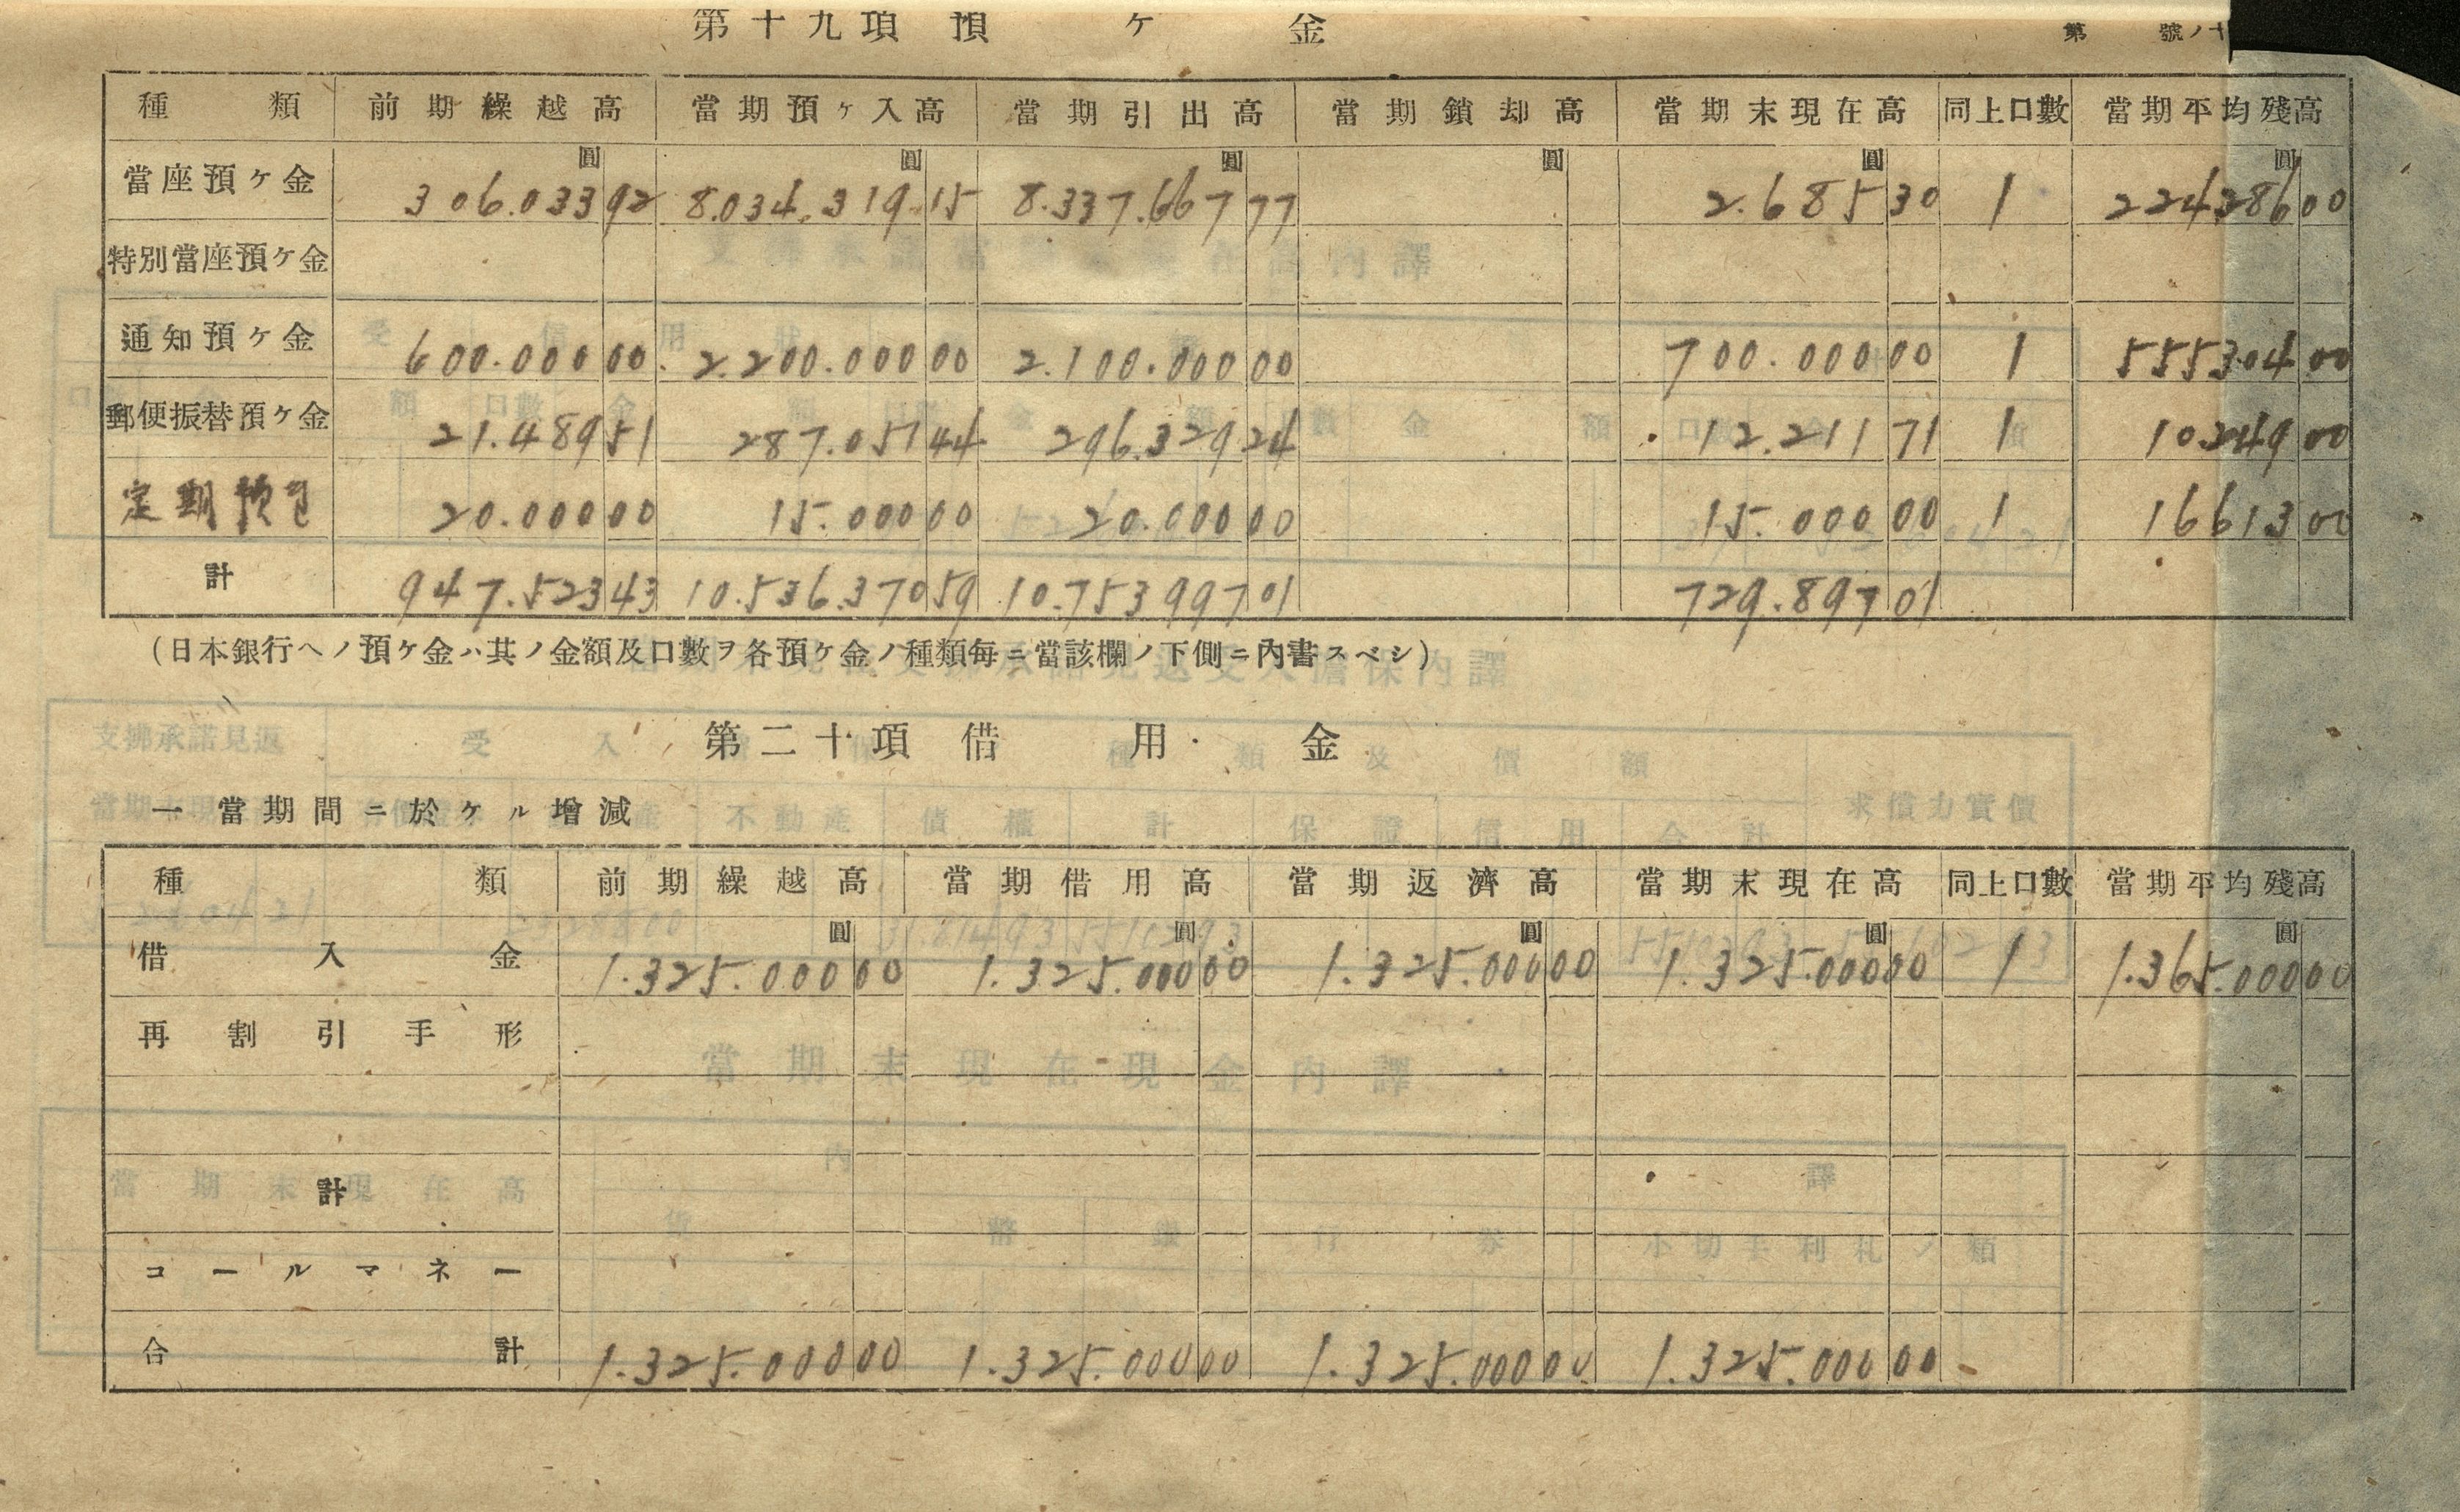 第十九項 預ヶ金 第 號ノ十
種類 前期繰越高 當期預ヶ入高 當期引出高 當期鎖却高 當期末現在高 同上口數 當期平均殘高
圓 圓 圓 圓 圓 圓
當座預ヶ金 306.033 92 8.034.319 15 8.337.667 77 2.685 30 1 224286 00
特別當座預ヶ金
通知預ヶ金 600.000 00 2.200.000 00 2.100.000 00 700.000 00 1 555304 00
郵便振替預ヶ金 21.489 51 287.051 44 296.329 24 12.211 71 1 10249 00
定期預金 20.000 00 15.000 00 20.000 00 15.000 00 1 16613 00
計 947.523 43 10.536.370 59 10.753997 01 729.897 01
(日本銀行ヘノ預ヶ金ハ其ノ金額及口數ヲ各預ヶ金ノ種類每ニ當該欄ノ下側ニ內書スベシ)
第二十項 借用金
一 當期間ニ於ケル增減
種類 前期繰越高 當期借用高 當期返濟高 當期末現在高 同上口數 當期平均殘高
圓 圓 圓 圓 圓
借入金 1.325.000 00 1.325.000 00 1.325.000 00 1.325.000 00 1 1.365.000 00
再割引手形
計
コールマネー
合計 1.325.000 00 1.325.000 00 1.325.000 00 1.325.000 00